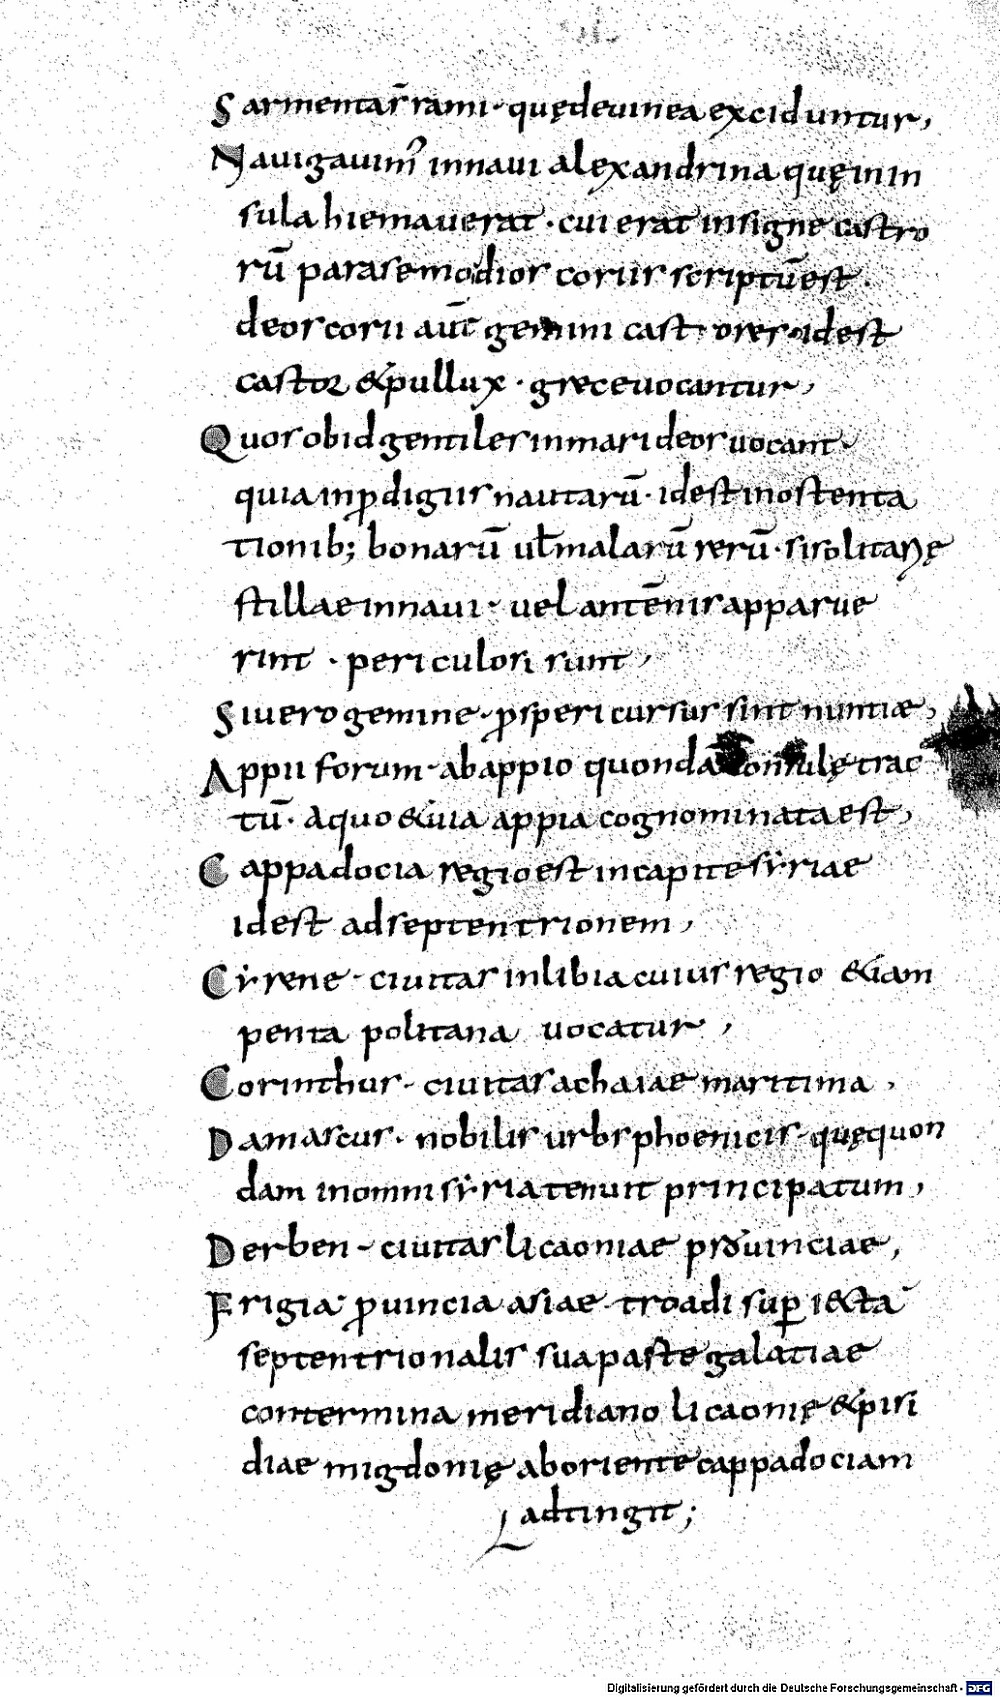 Sarmentar̄ rami · quę de uinea exciduntur,
Nauigauim᾿ in naui alexandrina quę in in
sula hiemauerat · cui erat insigne castro
rū parasemo dios corus scriptū est ·
deos corii aūt gemini cast ores · id est
castor & pullux · grece uocantur,
Quos ob id gentiles in mari deos uocant ·
quia in pdigiis nautarū · id est in ostenta
tionib; bonarū ul̄ malarū rerū · si solitarię
stillae in naui · uel antēnis apparue
rint · periculosi sunt,
Si uero gemine · psperi cursus sint nuntiae,
Appii forum · ab appio quondā consulę trac
tū · a quo & uia appia cognominata est,
Cappadocia regio est in capite syriae
id est ad septentrionem,
Cyrene · ciuitas in libia cuius regio &iam
penta politana uocatur,
Corinthus · ciuitas achaiae maritima,
Damascus · nobilis urbs phoenicis · quę quon
dam in omni syria tenuit principatum,
Derben · ciuitas licaoniae prouinciae,
Frigia puincia asiae troadi sup i&cta
septentrionalis sua paste galatiae
contermina meridiano licaonię & pisi
diae migdonię ab oriente cappadociam
adtingit;
Digitalisierung gefördert durch die Deutsche Forschungsgemeinschaft - DFG